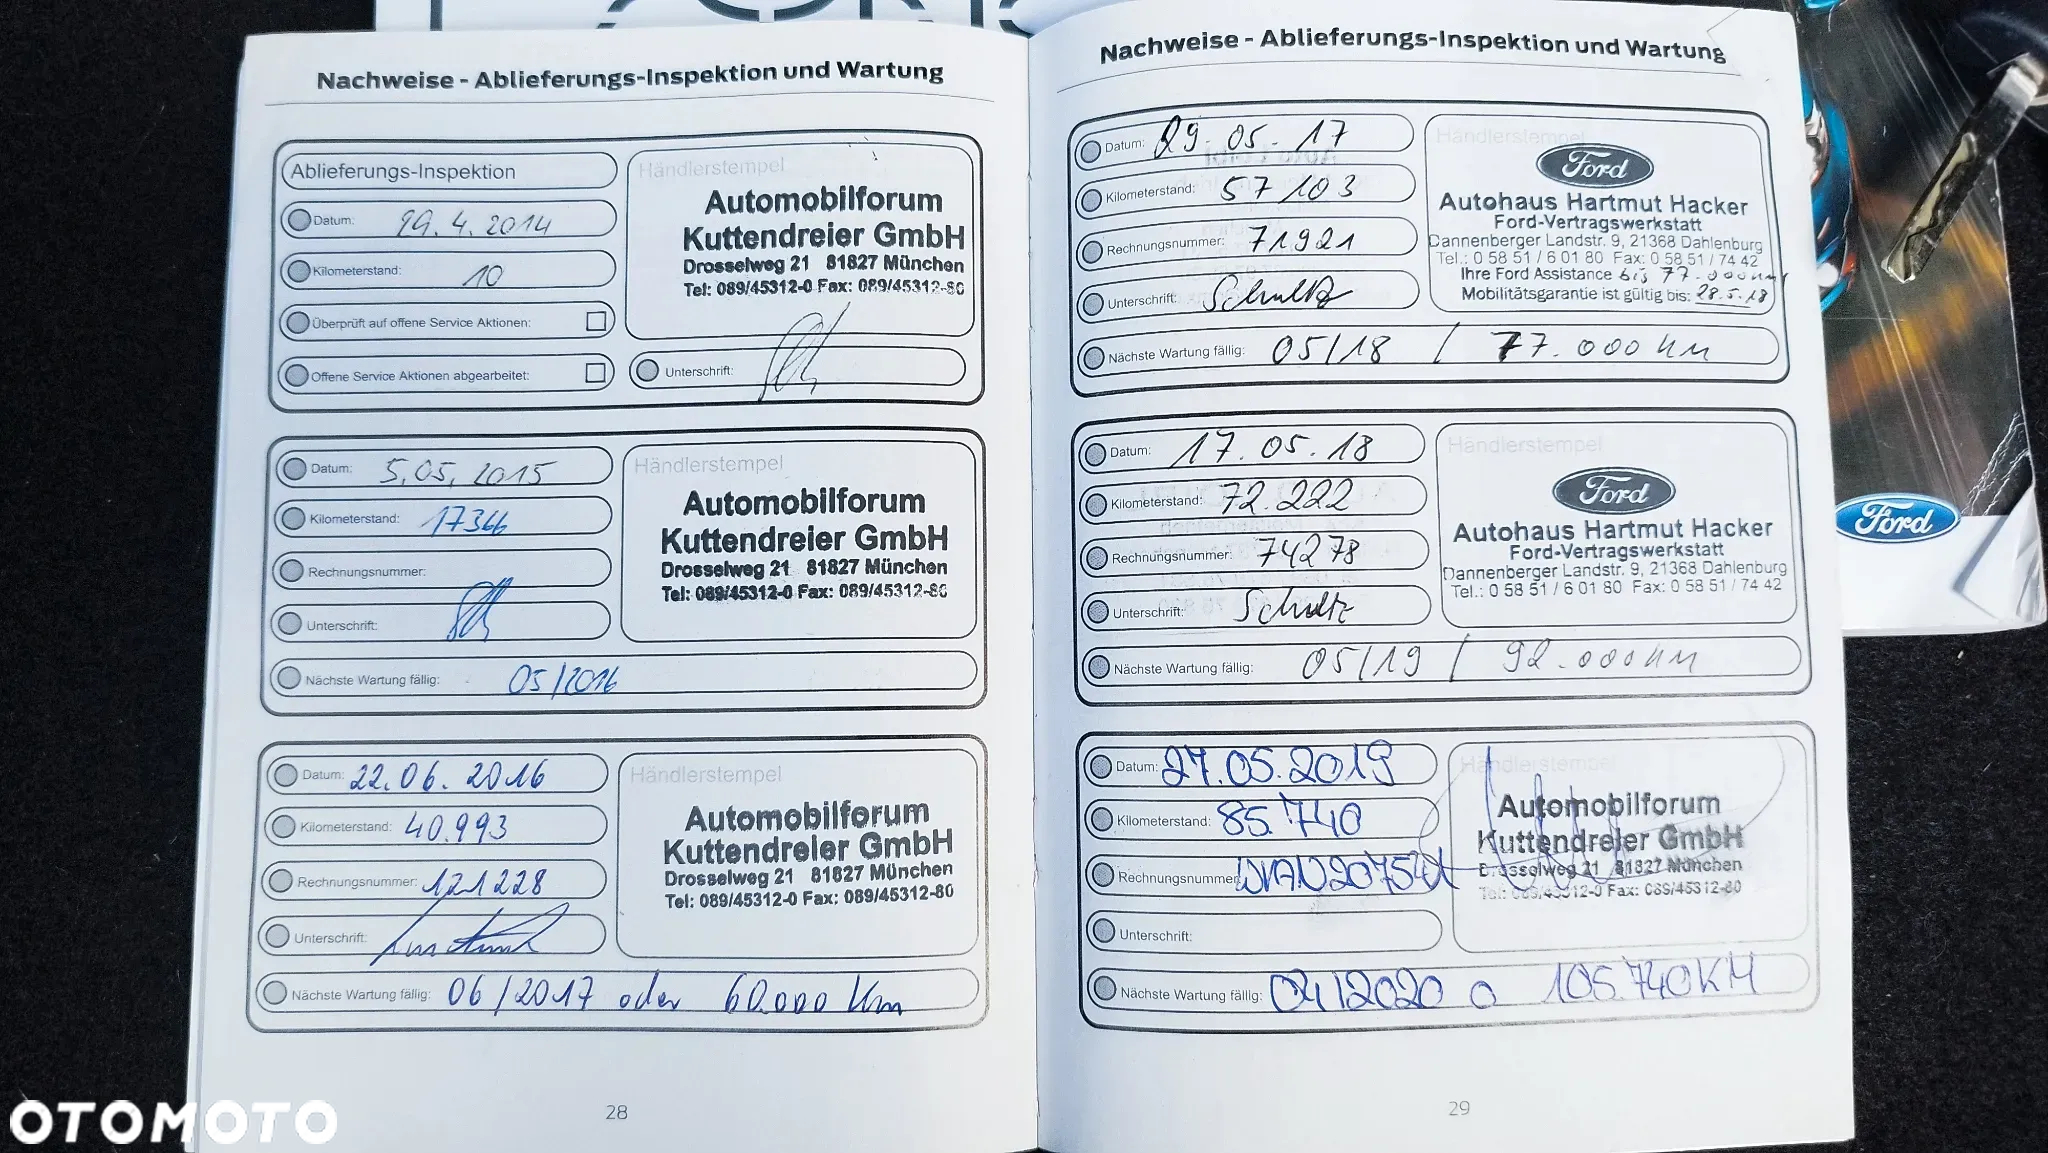 Nachweise - Ablieferungs-Inspektion und Wartung
Ablieferungs-Inspektion
Datum: 29.4.2014
Kilometerstand: 10
Überprüft auf offene Service Aktionen:
Offene Service Aktionen abgearbeitet:
Händlerstempel
Automobilforum
Kuttendreier GmbH
Drosselweg 21 81827 München
Tel: 089/45312-0 Fax: 089/45312-80
Unterschrift:
Datum: 5.05.2015
Kilometerstand: 17366
Rechnungsnummer:
Unterschrift:
Händlerstempel
Automobilforum
Kuttendreier GmbH
Drosselweg 21 81827 München
Tel: 089/45312-0 Fax: 089/45312-80
Nächste Wartung fällig: 05/2016
Datum: 22.06.2016
Kilometerstand: 40.993
Rechnungsnummer: 121228
Unterschrift:
Händlerstempel
Automobilforum
Kuttendreier GmbH
Drosselweg 21 81827 München
Tel: 089/45312-0 Fax: 089/45312-80
Nächste Wartung fällig: 06/2017 oder 60.000 Km
28
Nachweise - Ablieferungs-Inspektion und Wartung
Datum: 29.05.17
Kilometerstand: 57103
Rechnungsnummer: 71921
Unterschrift: Schultz
Händlerstempel
Ford
Autohaus Hartmut Hacker
Ford-Vertragswerkstatt
Dannenberger Landstr. 9, 21368 Dahlenburg
Tel.: 0 58 51 / 6 01 80 Fax: 0 58 51 / 74 42
Ihre Ford Assistance bis 77.000km
Mobilitätsgarantie ist gültig bis: 28.5.18
Nächste Wartung fällig: 05/18 / 77.000 km
Datum: 17.05.18
Kilometerstand: 72.222
Rechnungsnummer: 74278
Unterschrift: Schultz
Händlerstempel
Ford
Autohaus Hartmut Hacker
Ford-Vertragswerkstatt
Dannenberger Landstr. 9, 21368 Dahlenburg
Tel.: 0 58 51 / 6 01 80 Fax: 0 58 51 / 74 42
Nächste Wartung fällig: 05/19 / 92.000km
Datum: 27.05.2019
Kilometerstand: 85.740
Rechnungsnummer:
Unterschrift:
Händlerstempel
Automobilforum
Kuttendreier GmbH
Drosselweg 21 81827 München
Tel: 089/45312-0 Fax: 089/45312-80
Nächste Wartung fälllig: 04/2020 o 105.740KM
29
Ford
OTOMOTO